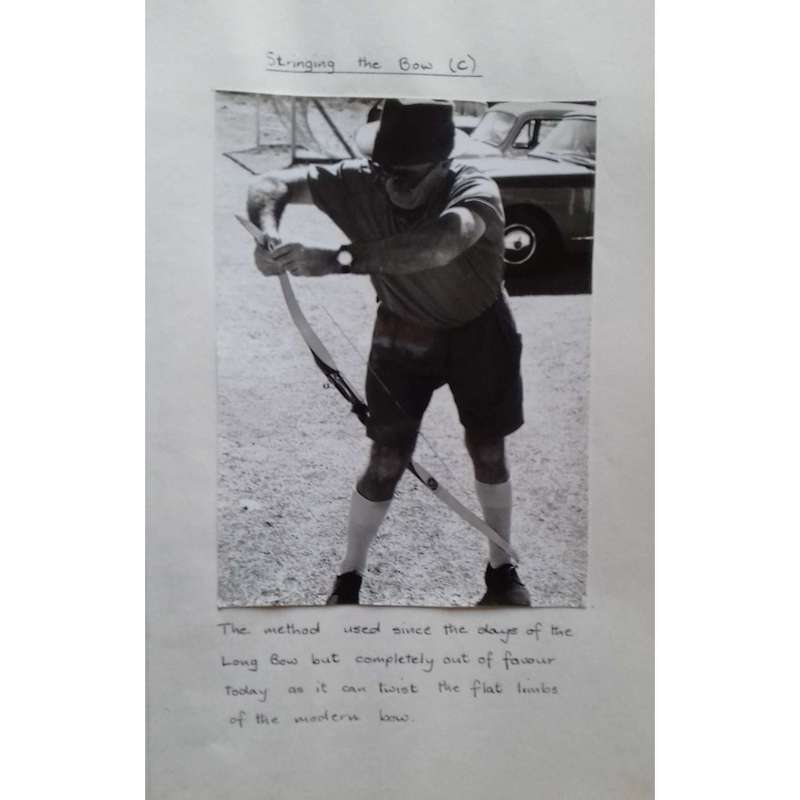 Stringing the Bow (C)
The method used since the days of the
Long Bow but completely out of favour
today as it can twist the flat limbs
of the modern bow.